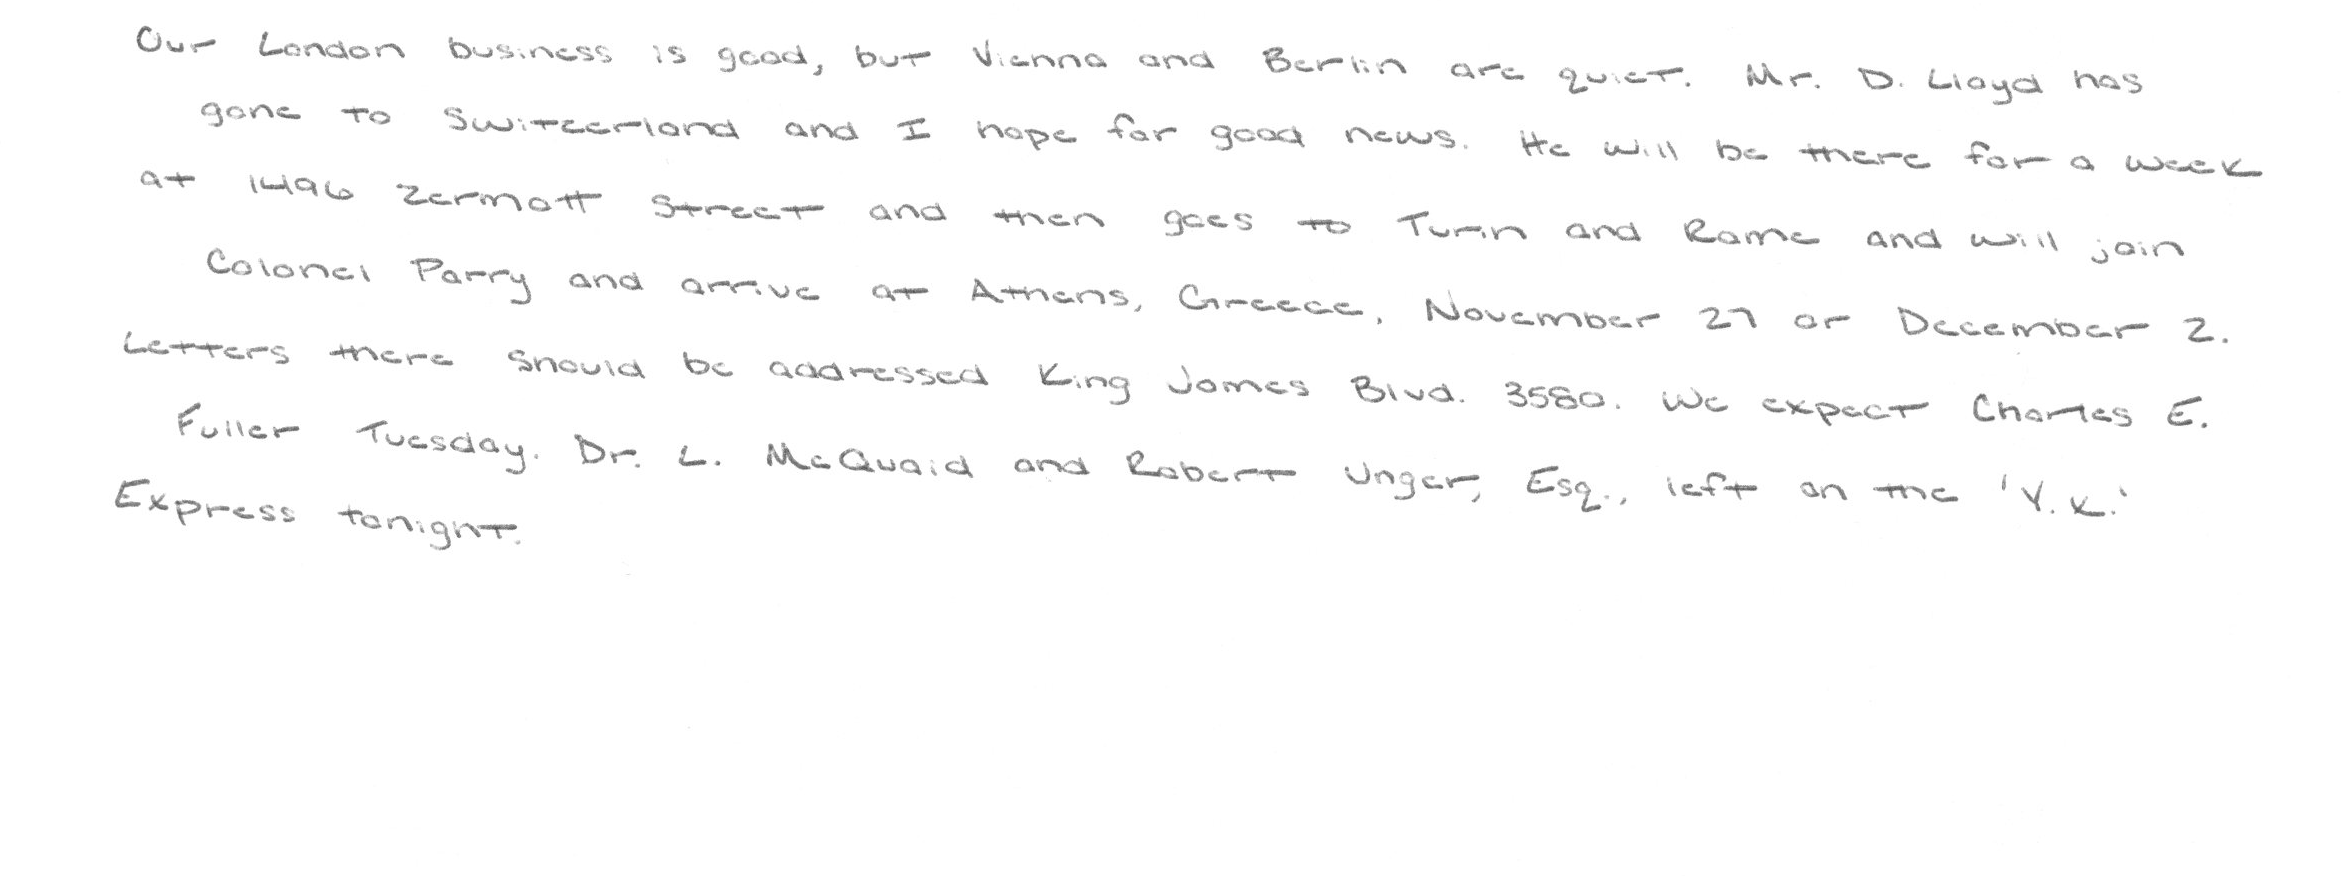 Our London business is good, but Vienna and Berlin are quiet. Mr. D. Lloyd has
gone to Switzerland and I hope for good news. He will be there for a week
at 1496 Zermott Street and then goes to Turin and Rome and will join
Colonel Parry and arrive at Athens, Greece, November 27 or December 2.
Letters there should be addressed King James Blvd. 3580. We expect Charles E.
Fuller Tuesday. Dr. L. McQuaid and Robert Unger, Esq., left on the 'Y.X.'
Express tonight.